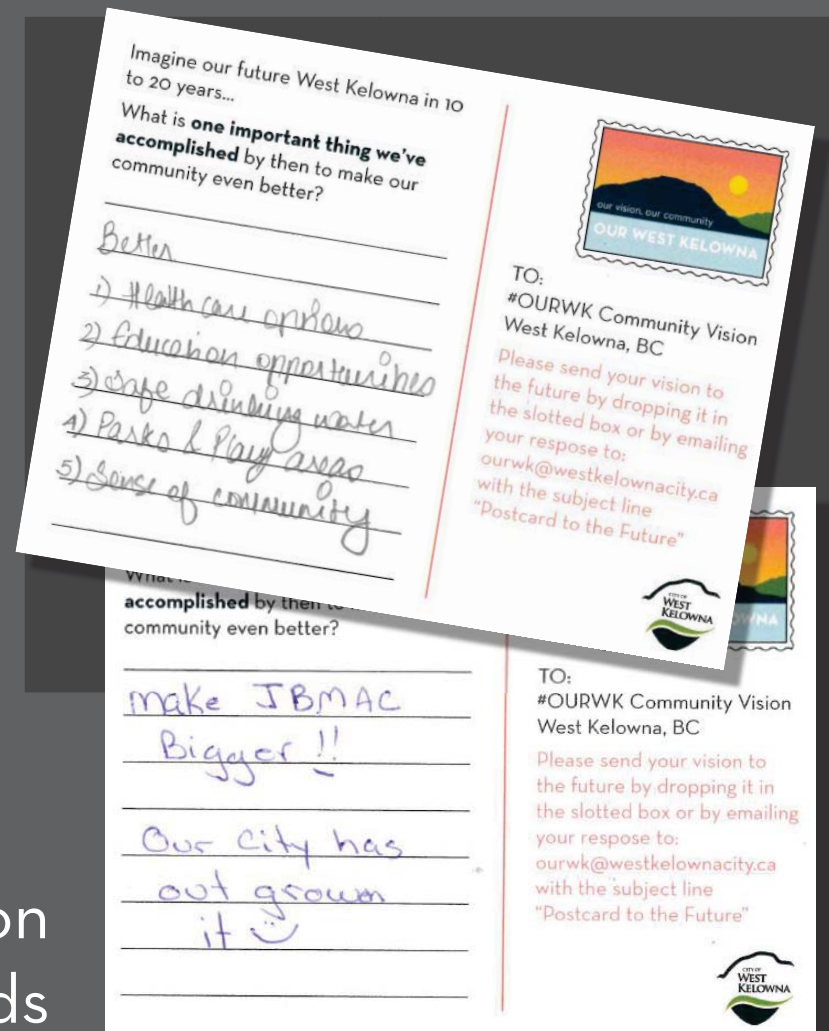 Imagine our future West Kelowna in 10
to 20 years...
What is one important thing we've
accomplished by then to make our
community even better?
Better
1) Health care options
2) Education opportunities
3) Safe drinking water
4) Parks & Play areas
5) Sense of community
our vision, our community
OUR WEST KELOWNA
TO:
#OURWK Community Vision
West Kelowna, BC
Please send your vision to
the future by dropping it in
the slotted box or by emailing
your respose to:
ourwk@westkelownacity.ca
with the subject line
"Postcard to the Future"
CITY OF
WEST
KELOWNA
accomplished by then
community even better?
make JBMAC
Bigger !!
Our City has
out grown
it
TO:
#OURWK Community Vision
West Kelowna, BC
Please send your vision to
the future by dropping it in
the slotted box or by emailing
your respose to:
ourwk@westkelownacity.ca
with the subject line
"Postcard to the Future"
CITY OF
WEST
KELOWNA